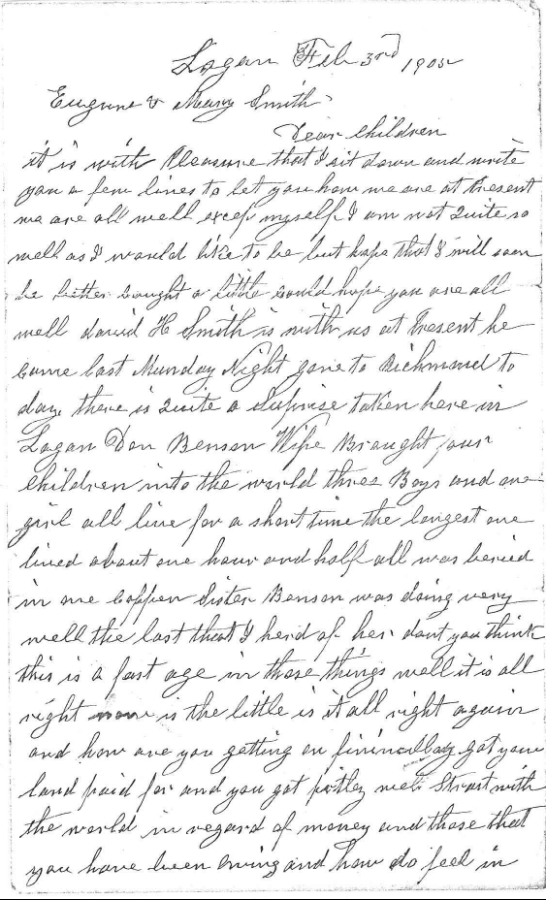 Logan Feb 3rd 1905
Eugene & Mary Smith
Dear Children
it is with Pleasure that I sit down and write
you a few lines to let you how we are at Present
we are all well excep myself I am not Quite so
well as I would like to be but hope that I will soon
be better cought a little could hope you are all
well david H Smith is with us at Present he
came last Munday Night gone to Richmond to
day there is Quite a Suprise taken here in
Logan Don Benson Wife Brought four
Children into the world three Boys and one
girl all live for a short time the longest one
lived about one hour and half all was beried
in one coffen Sister Benson was doing very
well the last that I herd of her dont you think
this is a fast age in those things well it is all
right is the little is it all right again
and how are you getting on got your
land paid for and you got pritley well Strait with
the world in regard of money and those that
you have been owing and how do feel in